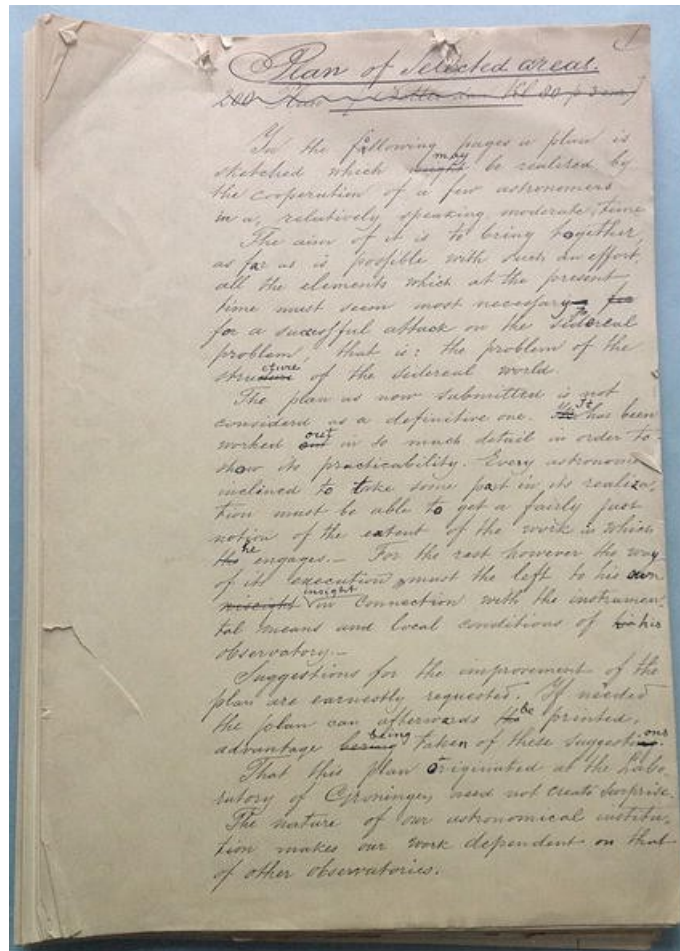 Plan of Selected areas.
In the following pages a plan is
sketched which may be realized by
the cooperation of a few astronomers
in a, relatively speaking moderate, time
The aim of it is to bring together,
as far as is possible with such an effort,
all the elements which at the present
time must seem most necessary
for a successful attack on the sidereal
problem, that is: the problem of the
structure of the sidereal world.
The plan as now submitted is not
considerd as a definitive one. It has been
worked out in so much detail in order to
show its practicability. Every astronomer
inclined to take some part in its realiza-
tion must be able to get a fairly just
notion of the extent of the work in which
he engages.— For the rest however the way
of its execution must the left to his own
insight in connection with the instrumen-
tal means and local conditions of his
observatory.—
Suggestions for the improvement of the
plan are earnestly requested. If needed
the plan can afterwards be printed,
advantage being taken of these suggestions.
That this plan originated at the Labo-
ratory of Groningen, need not create surprise.
The nature of our astronomical institu-
tion makes our work dependent on that
of other observatories.